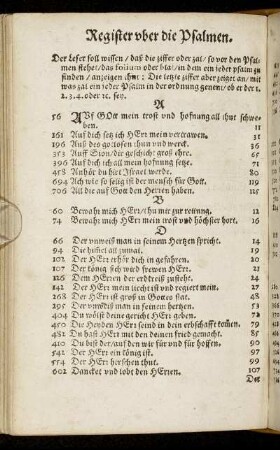 Register vber die Psalmen.
Der leser soll wissen / daß die ziffer oder zal / so vor den Psal-
men stehet / das folium oder blat / in dem ein jeder psalm zu
finden / anzeigen thut: Die letzte ziffer aber zeiget an / mit
was zal ein jeder Psalm in der ordnung genent / ob er der 1.
2. 3. 4. oder ꝛc. sey.
A
56 AUf GOtt mein trost vnd hofnung all ihut schwe-
ben. 11
161 Auf dich setz ich HErr mein vertrawen. 31
196 Auß des gottlosen thun vnd werck. 36
353 Auff Sion / dir geschicht groß ehre. 65
396 Auf dich ich all mein hofnung setze. 71
458 Anhör du hirt Israel werdt. 80
694 Ach wie so selig ist der mensch für Gott.
706 All die auf Gott den Herren haben.
B
60 Bewahr mich HErr / thu mir zur rettung. 12
74 Bewahr mich HErr mein trost vnd höchster hort. 16
D
66 Der vnweiß man in seinem Hertzen spricht. 14
94 Die himel all zumal. 19
102 Der HErr erhör dich in gefahren. 20
107 Der könig sich wird frewen HErr. 21
126 Dem HErren der erdtreiß zusteht. 24
142 Der HErr mein liecht ist vnd regiert mein. 27
268 Der HErr ist groß in Gottes stat. 48
295 Der vnweiß man in seinem hertzen. 53
404 Du wölst deine gericht HErr geben. 72
450 Die Heyden HErr seind in dein erbschafft komen. 79
482 Du hast HErr mit den deinen fried gemacht. 85
410 Du bist der / auf den wir für vnd für hoffen. 90
542 Der HErr ein könig ist. 97
554 Der HErr herschen thut. 99
602 Dancket vnd lobt den HErren. 107
Der